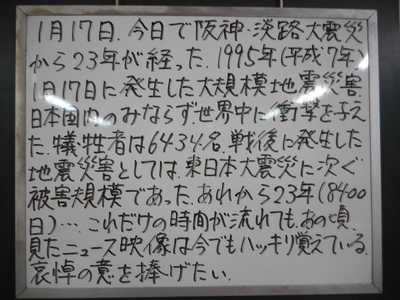 1月17日. 今日で阪神・淡路大震災
から23年が経った. 1995年(平成7年)
1月17日に発生した大規模地震災害.
日本国内のみならず世界中に衝撃を与え
た. 犠牲者は6434名. 戦後に発生した
地震災害としては、東日本大震災に次ぐ
被害規模であった. あれから23年(8400
日)…. これだけの時間が流れても、あの頃
見たニュース映像は今でもハッキリ覚えている.
哀悼の意を捧げたい.